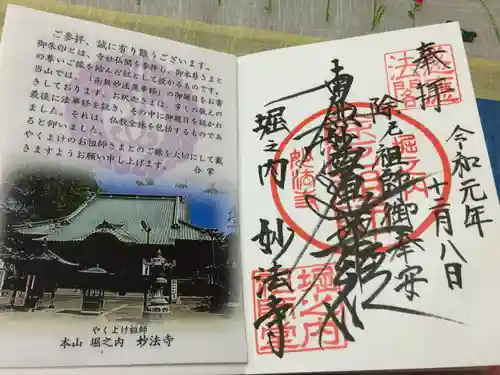 ご参拝、誠に有り難うございます。
御朱印とは、寺社仏閣を参拝し、御本尊さまと
の尊いご縁を結んだ証として授かるものです。
当山では、「南無妙法蓮華経」の御題目をお書
きしております。お釈迦さまは、多くの教えの
最後に法華経を説き、その中に御題目を説かれ
ました。それは、仏教全体を包括するものであ
ると仰いました。
やくよけのお祖師さまとのご縁を大切にして戴
きますようお願い申し上げます。
合掌
やくよけ祖師
本山 堀之内 妙法寺
奉拝
令和元年
十二月八日
除厄祖師御奉安
南無妙法蓮華経
堀之内 妙法寺
堀之内